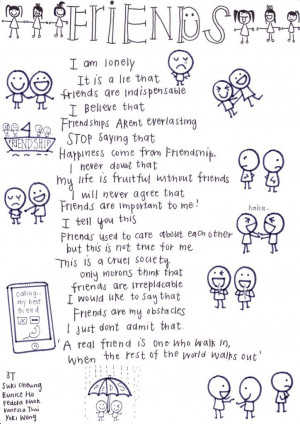 FRiENDS
I am lonely
It is a lie that
friends are indispensable
I Believe that
Friendships ARent everlasting
STOP saying that
Happiness come from Friendship.
I never doubt that
my life is fruitful without friends
I will never agree that
Friends are important to me!
I tell you this
Friends used to care about each other
but this is not true for me
This is a cruel society
only morons think that
friends are irreplacable
I would like to say that
Friends are my obstacles
I just dont admit that.
'A real friend is one who walk in,
when the rest of the world walks out'
FRIENDSHIP
haha..
calling...
my best
friend
3T
Suki Cheung
Eunice Ho
Vanessa Thui
Yuki Wong